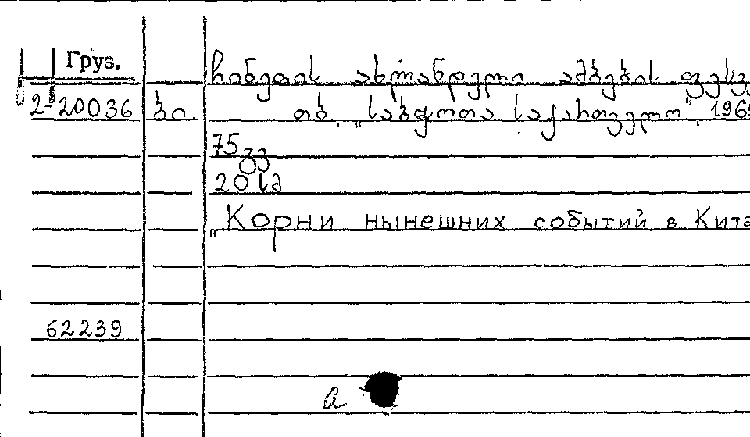 Груз.
ჩინეთის ახლანდელი ამბების ფესვ
2-20036 ხი. თბ. „საბჭოთა საქართველო", 196
75 გვ
20 სმ
„Корни нынешних событий в Кита
62239
а